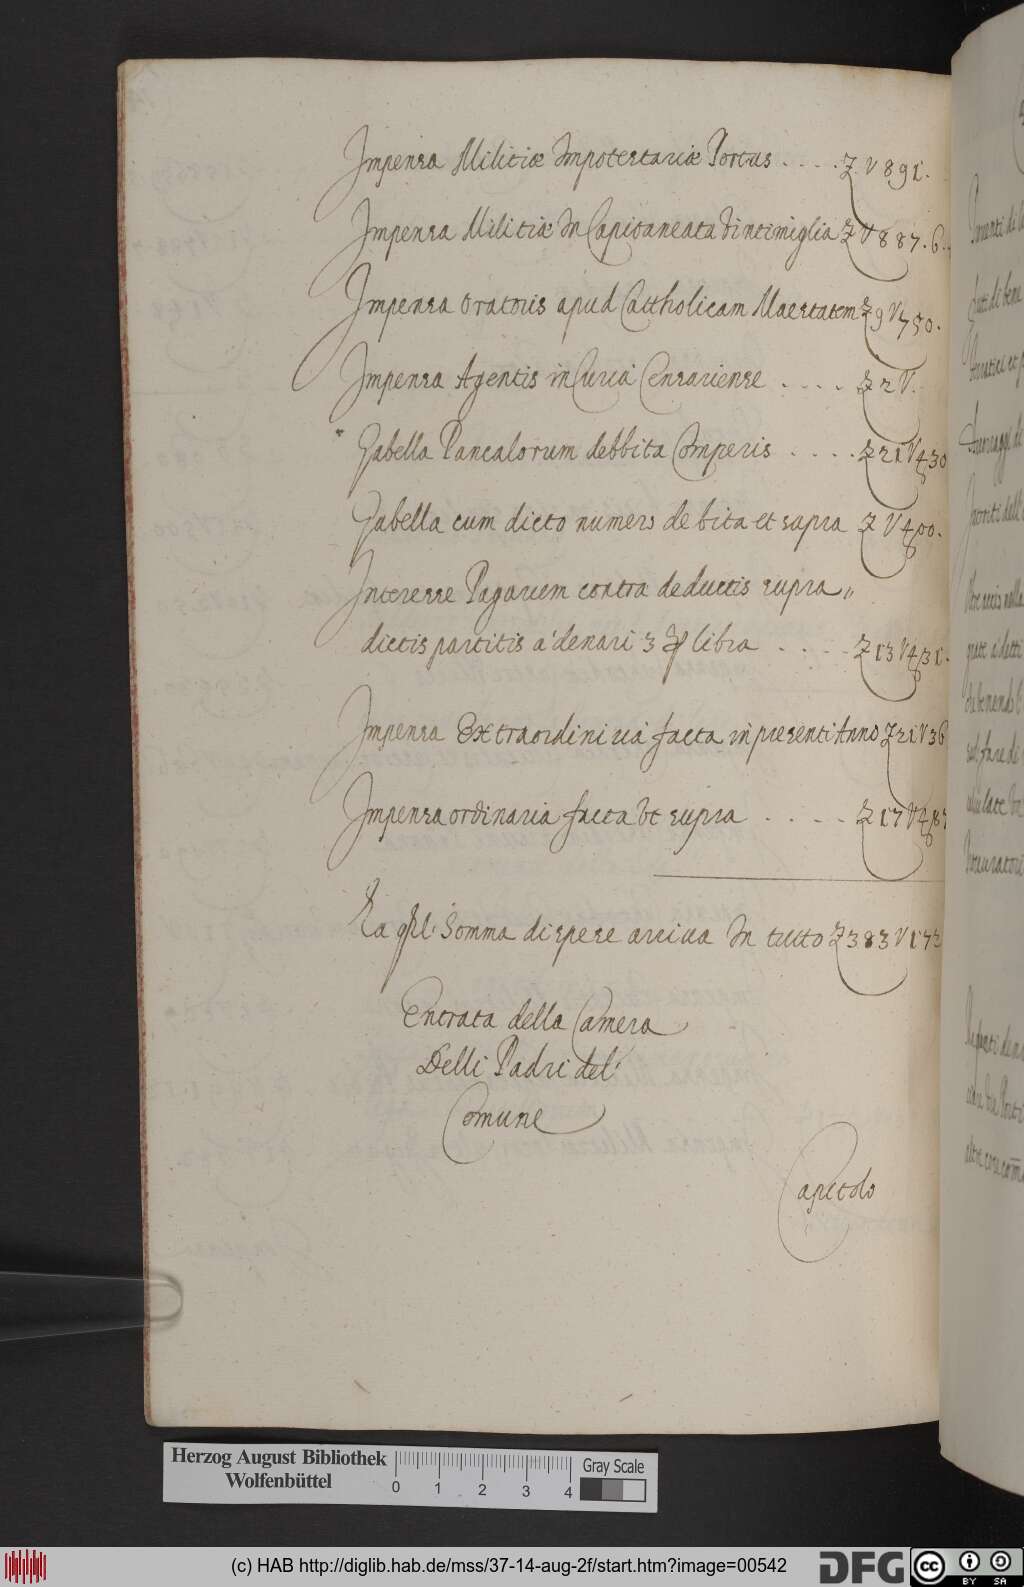 Impensa Militiæ Impotestariæ Portus . . . . . £ V 891.
Impensa Militiæ In Capitaneata Vintimiglia £ V 887. 6.
Impensa Oratoris apud Cattholicam Maestatem £ 9 V 750.
Impensa Agentis in Curià Censariense . . . . £ 2 V.
Gabella Pancalorum debbita Comperis . . . . £ 21 V 430
Gabella cum dicto numero debita et supra £ V 400.
Interesse Pagarum contra deductis supra„
dictis partitis a' denari 3 ꝑ libra . . . . . £ 13 V 431.
Impensa Extraordiniria facta in presenti Anno £ 21 V 36
Impensa ordinaria facta Vt supra . . . . . £ 17 V 487
La qꝑl: Somma di spese arriua In tutto £ 383 V 173
Entrata della Camera
Delli Padri del'
Comune
Capitolo
Herzog August Bibliothek
Wolfenbüttel
0 1 2 3 4
Gray Scale
(c) HAB http://diglib.hab.de/mss/37-14-aug-2f/start.htm?image=00542
DFG
cc BY SA